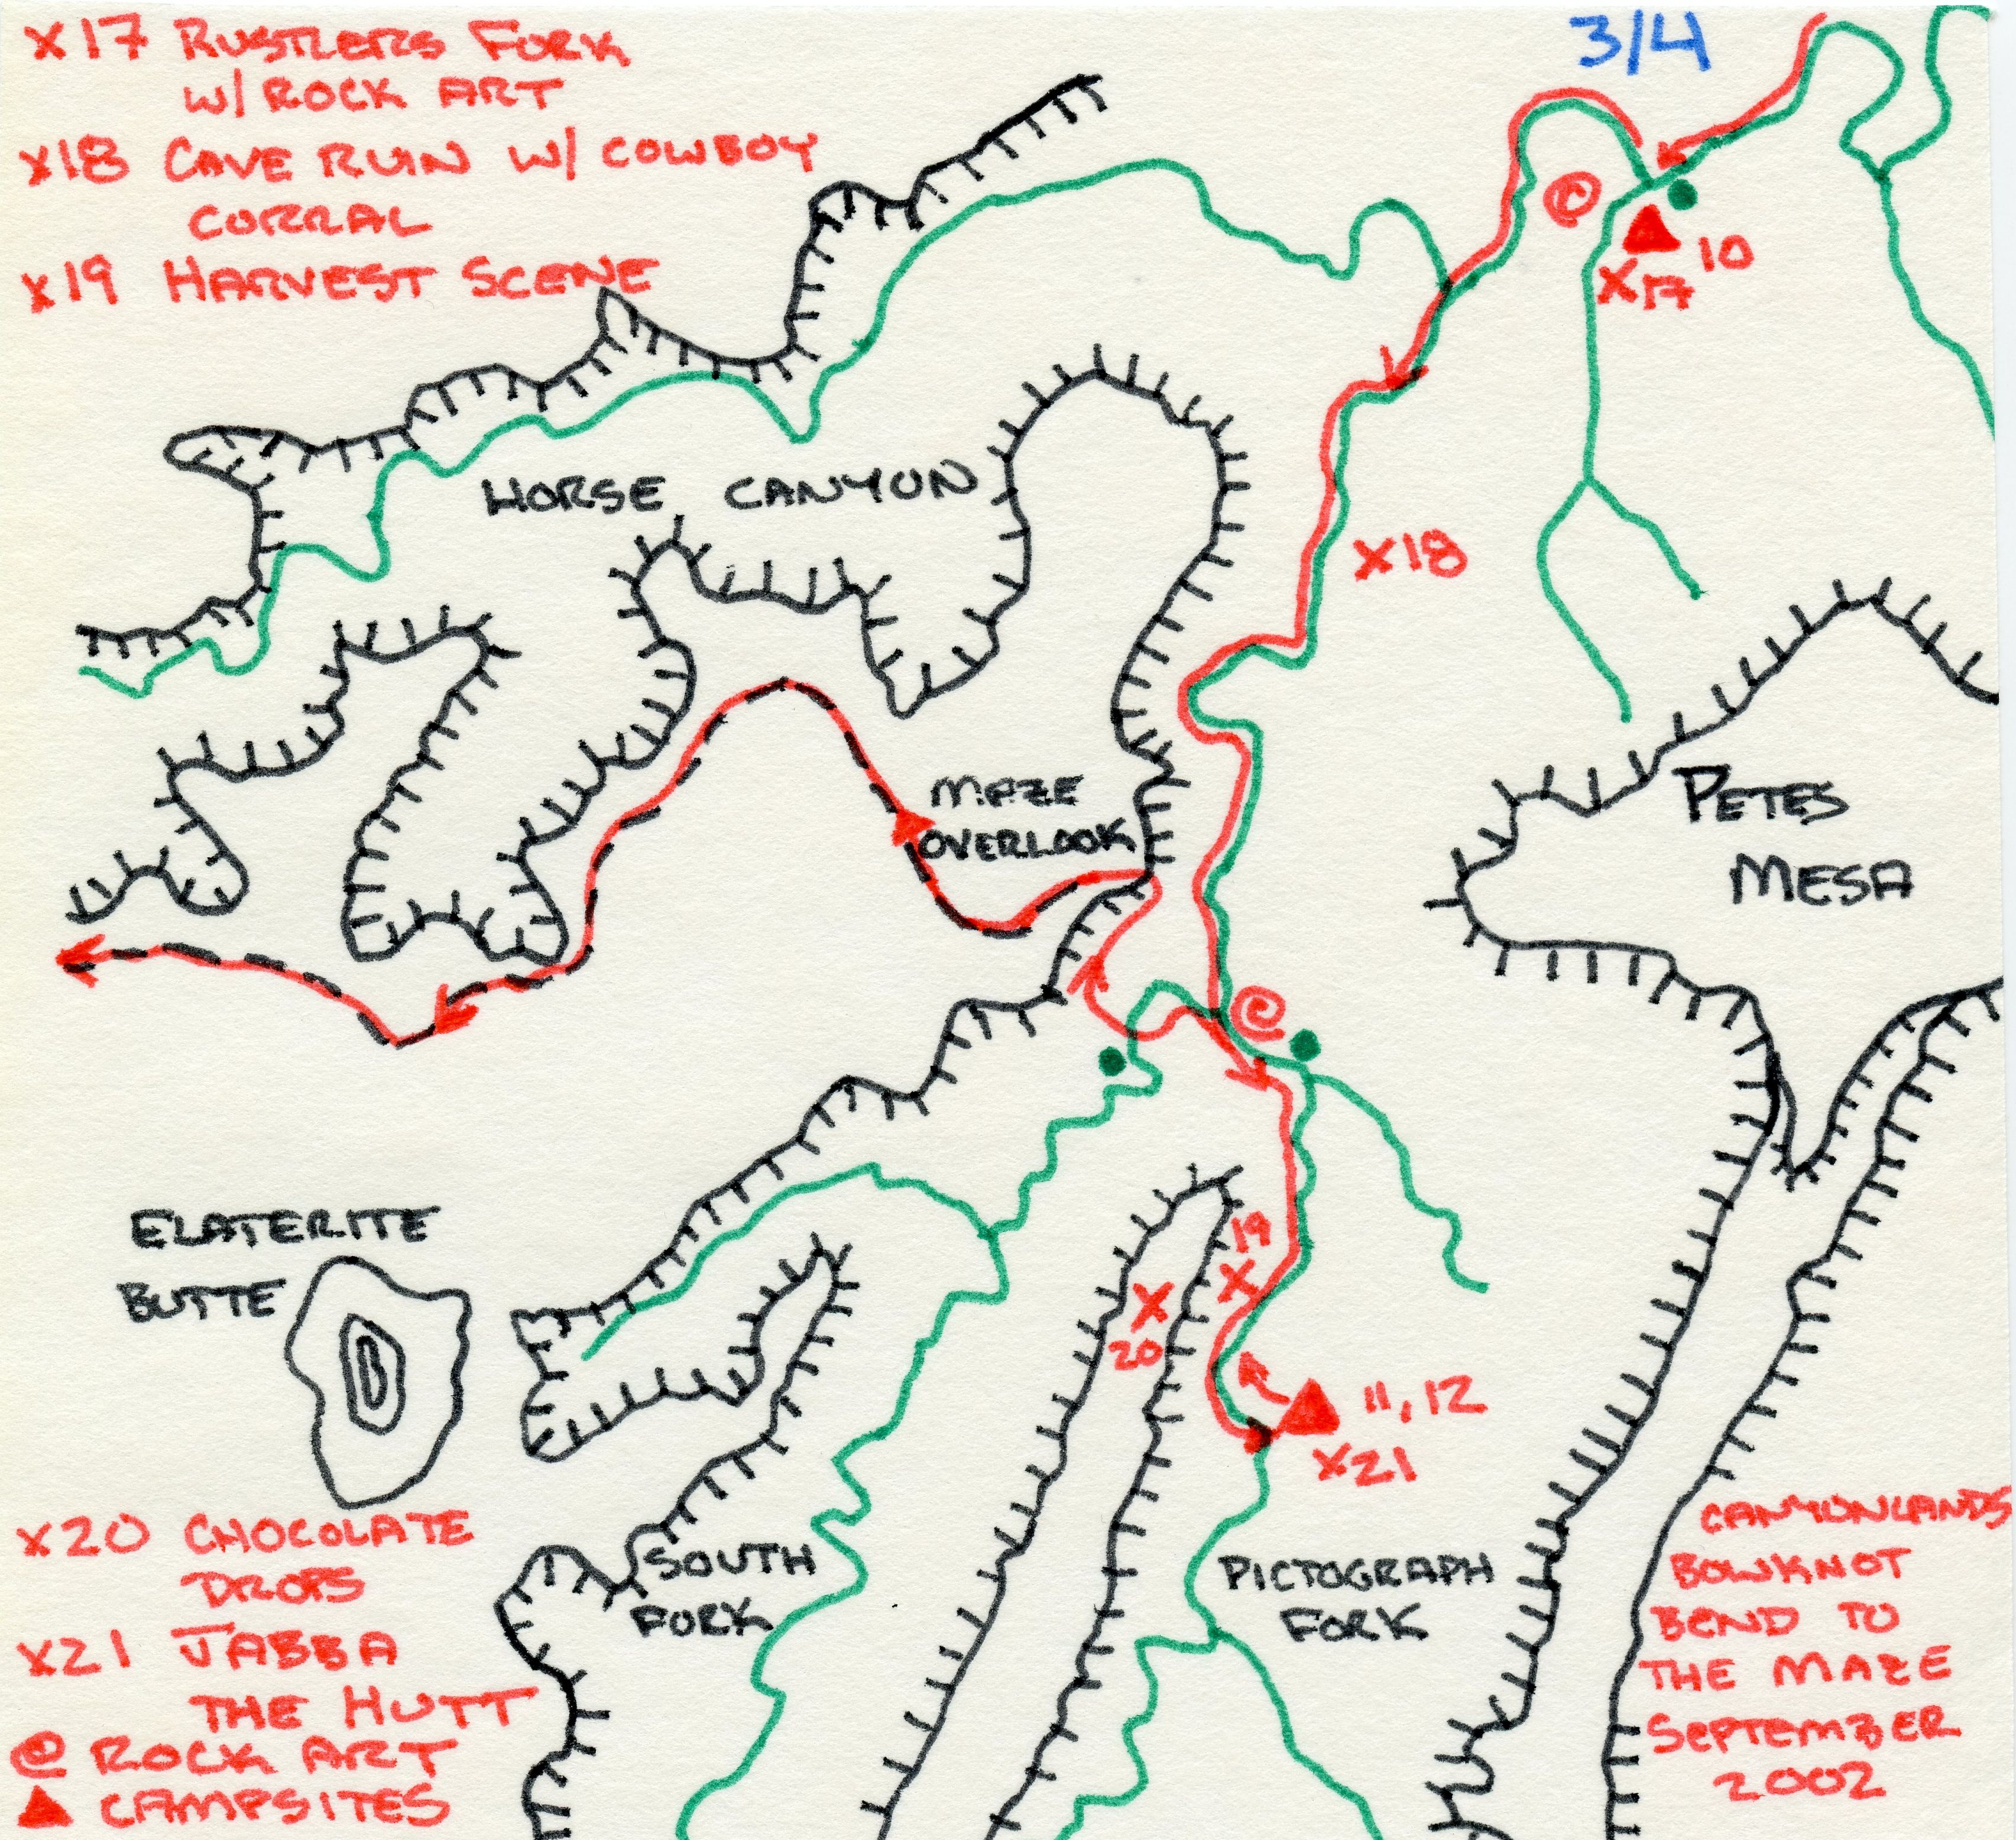 X17 RUSTLERS FORK
W/ ROCK ART
X18 CAVE RUIN W/ COWBOY
CORRAL
X19 HARVEST SCENE
3/4
10
X17
HORSE CANYON
X18
MAZE
OVERLOOK
PETES
MESA
ELATERITE
BUTTE
19
X
X
20
11, 12
X21
SOUTH
FORK
PICTOGRAPH
FORK
X20 CHOCOLATE
DROPS
X21 JABBA
THE HUTT
@ ROCK ART
▲ CAMPSITES
CANYONLANDS
BOWKNOT
BEND TO
THE MAZE
SEPTEMBER
2002